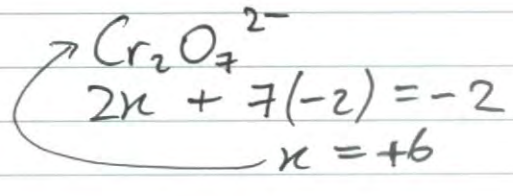 Cr₂O₇²⁻
2x + 7(-2) = -2
x = +6